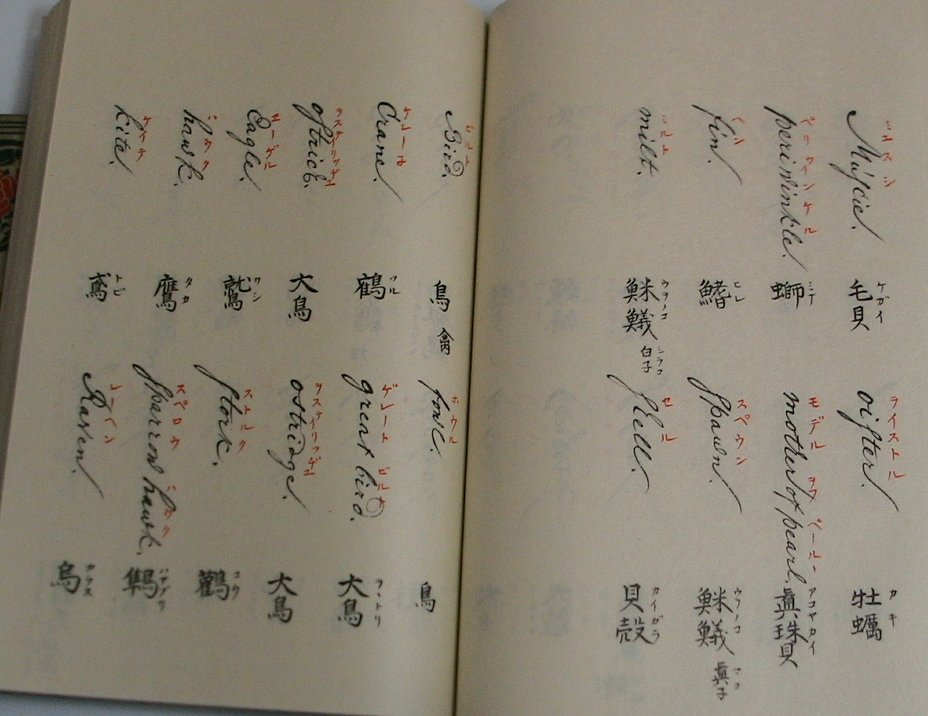 Muſcle. 毛貝 ケガイ
oiſter. ライストル 牡蠣 カキ
periwinkle. ペリウインケル 螄
mother of pearl. モデル ヲフ ペールー 眞珠貝 アコヤカイ
fin. 鰭 ヒレ
ſpawn. スペウン ウヲノコ 眞子 マコ
milt. ミルト ウヲノコ 白子 シラコ
ſhell. セル 貝殻 カイガラ
Bird. ビルド 鳥 禽
fowl. ホウル 鳥
Crane. ケレーネ 鶴 ツル
great bird. ゲレート ビルド 大鳥 ヲヽトリ
oſtrich. ヲストリッチュ 大鳥
ostridge. ヲステイリッヂュ 大鳥
Eagle. エーゲル 鷲 ワシ
ſtork. ストルク 鸛 コウ
hawk. ハウク 鷹 タカ
ſperrow hawk. スペロウ ハウク 隼鳥 ハヤブサ
kite. ケイテ 鳶 トビ
Raven. レーベン 烏 カラス